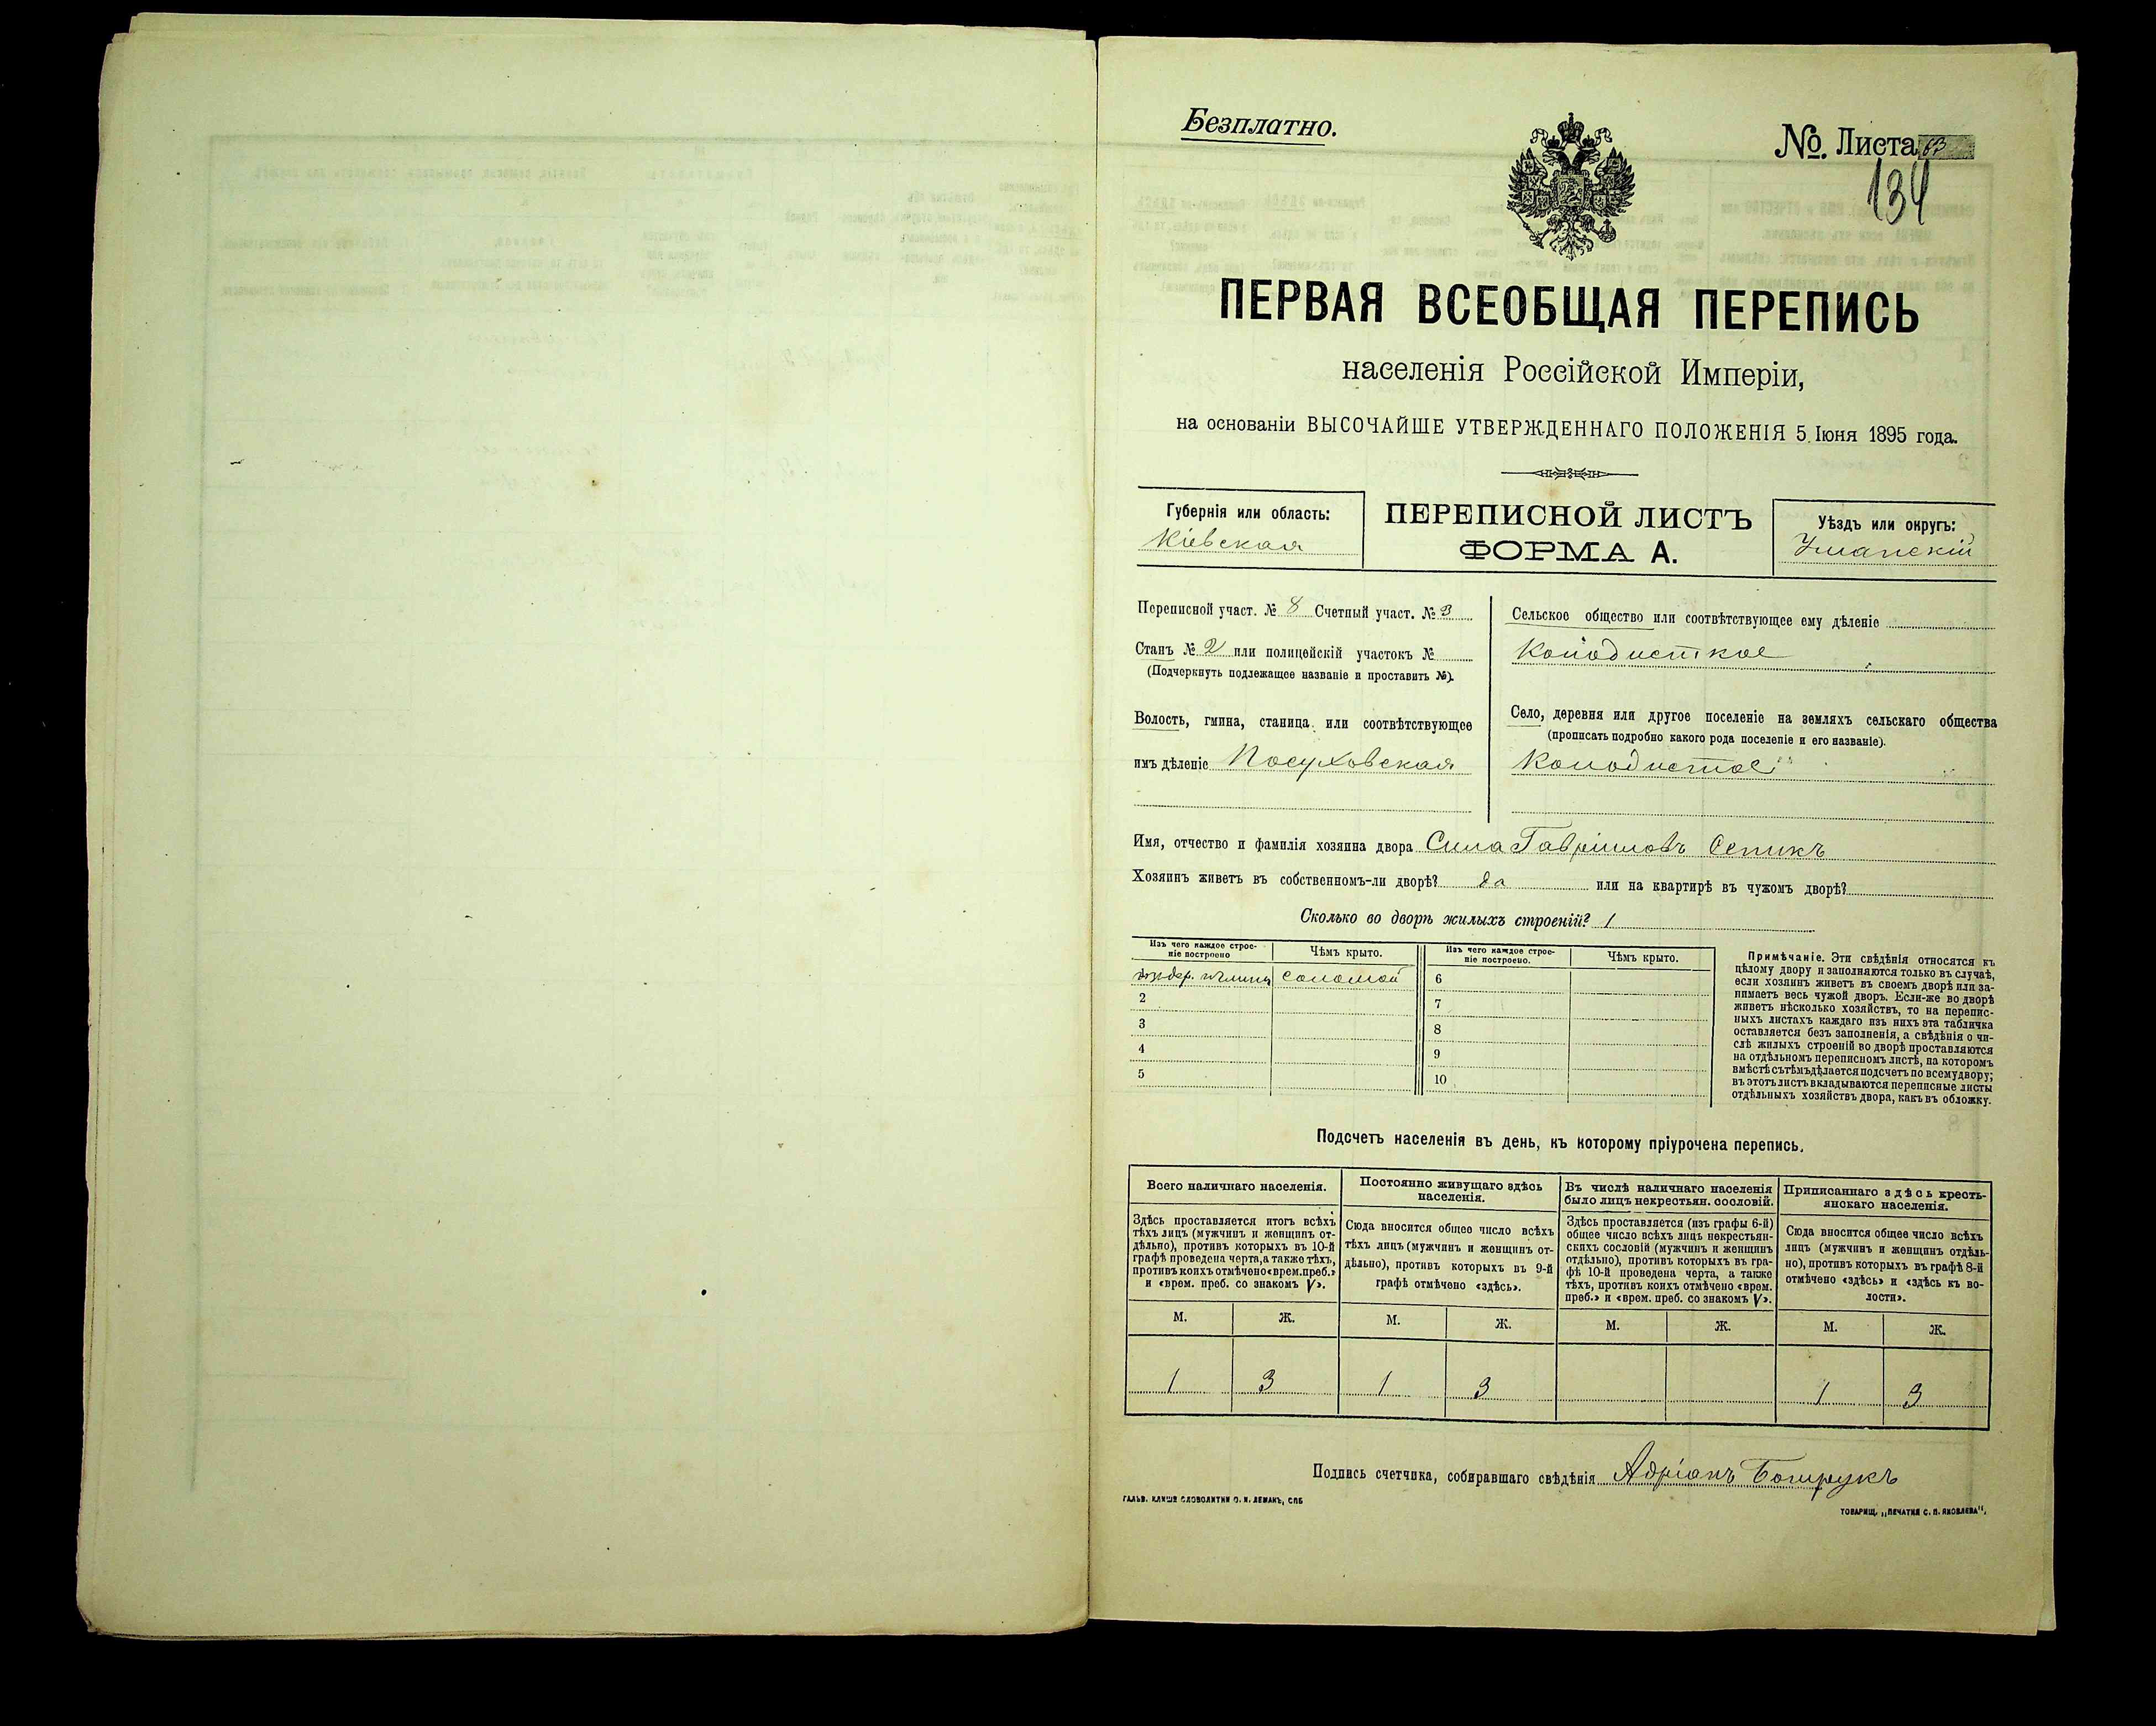 Безплатно.
№. Листа 63
134
ПЕРВАЯ ВСЕОБЩАЯ ПЕРЕПИСЬ
населенія Россійской Имперіи,
на основаніи ВЫСОЧАЙШЕ УТВЕРЖДЕННАГО ПОЛОЖЕНІЯ 5 Іюня 1895 года.
Губернія или область:
Кіевская
ПЕРЕПИСНОЙ ЛИСТЪ
ФОРМА А.
Уѣздъ или округъ:
Уманскій
Переписной участ. № 8 Счетный участ. № 3
Станъ № 2 или полицейскій участокъ №
(Подчеркнуть подлежащее названіе и проставить №).
Волость, гмина, станица или соотвѣтствующее
имъ дѣленіе Посуховская
Сельское общество или соотвѣтствующее ему дѣленіе
Колодисткое
Село, деревня или другое поселеніе на земляхъ сельскаго общества
(прописать подробно какого рода поселеніе и его названіе).
Колодистое
Имя, отчество и фамилія хозяина двора Сила Гавріиловъ
Хозяинъ живетъ въ собственномъ-ли дворѣ? да или на квартирѣ въ чужомъ дворѣ?
Сколько во дворѣ жилыхъ строеній? 1
Изъ чего каждое строе-
ніе построено
Чѣмъ крыто.
Изъ чего каждое строе-
ніе построено.
Чѣмъ крыто.
соломой
6
2
7
3
8
4
9
5
10
Примѣчаніе. Эти свѣдѣнія относятся къ
цѣлому двору и заполняются только въ случаѣ,
если хозяинъ живетъ въ своемъ дворѣ или за-
нимаетъ весь чужой дворъ. Если-же во дворѣ
живетъ нѣсколько хозяйствъ, то на перепис-
ныхъ листахъ каждаго изъ нихъ эта табличка
оставляется безъ заполненія, а свѣдѣнія о чи-
слѣ жилыхъ строеній во дворѣ проставляются
на отдѣльномъ переписномъ листѣ, на которомъ
вмѣстѣ съ тѣмъ дѣлается подсчетъ по всему двору;
въ этотъ листъ вкладываются переписные листы
отдѣльныхъ хозяйствъ двора, какъ въ обложку.
Подсчетъ населенія въ день, къ которому пріурочена перепись.
Всего наличнаго населенія.
Здѣсь проставляется итогъ всѣхъ
тѣхъ лицъ (мужчинъ и женщинъ от-
дѣльно), противъ которыхъ въ 10-й
графѣ проведена черта, а также тѣхъ,
противъ коихъ отмѣчено «врем. преб.»
и «врем. преб. со знакомъ V».
Постоянно живущаго здѣсь
населенія.
Сюда вносится общее число всѣхъ
тѣхъ лицъ (мужчинъ и женщинъ от-
дѣльно), противъ которыхъ въ 9-й
графѣ отмѣчено «здѣсь».
Въ числѣ наличнаго населенія
было лицъ некрестьян. сословій.
Здѣсь проставляется (изъ графы 6-й)
общее число всѣхъ лицъ некрестьян-
скихъ сословій (мужчинъ и женщинъ
отдѣльно), противъ которыхъ въ гра-
фѣ 10-й проведена черта, а также
тѣхъ, противъ коихъ отмѣчено «врем.
преб.» и «врем. преб. со знакомъ V».
Приписаннаго здѣсь кресть-
янскаго населенія.
Сюда вносится общее число всѣхъ
лицъ (мужчинъ и женщинъ отдѣль-
но), противъ которыхъ въ графѣ 8-й
отмѣчено «здѣсь» и «здѣсь къ во-
лости».
М. Ж. М. Ж. М. Ж. М. Ж.
1 3 1 3 1 3
Подпись счетчика, собиравшаго свѣдѣнія Адріанъ
ГАЛЬВ. КЛИШЕ СЛОВОЛИТНИ О. И. ЛЕМАНЪ, СПБ
ТОВАРИЩ. „ПЕЧАТНЯ С. П. ЯКОВЛЕВА“.